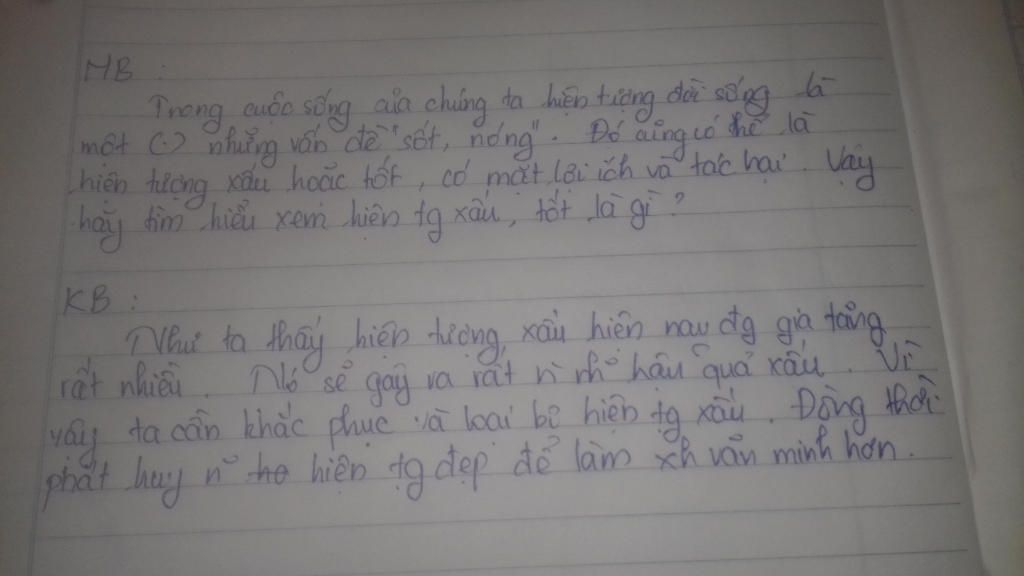 MB :
Trong cuộc sống của chúng ta hiện tượng đời sống là
một (.) những vấn đề "sốt, nóng". Đó cũng có thể là
hiện tượng xấu hoặc tốt, có mặt lợi ích và tác hại. Vậy
hãy tìm hiểu xem hiện tg xấu, tốt là gì?
KB :
Như ta thấy hiện tượng xấu hiện nay đg gia tăng
rất nhiều. Nó sẽ gây ra rất hậu quả xấu. Vì
vậy ta cần khắc phục và loại bỏ hiện tg xấu. Đồng thời
phát huy hiện tg đẹp để làm xh văn minh hơn.